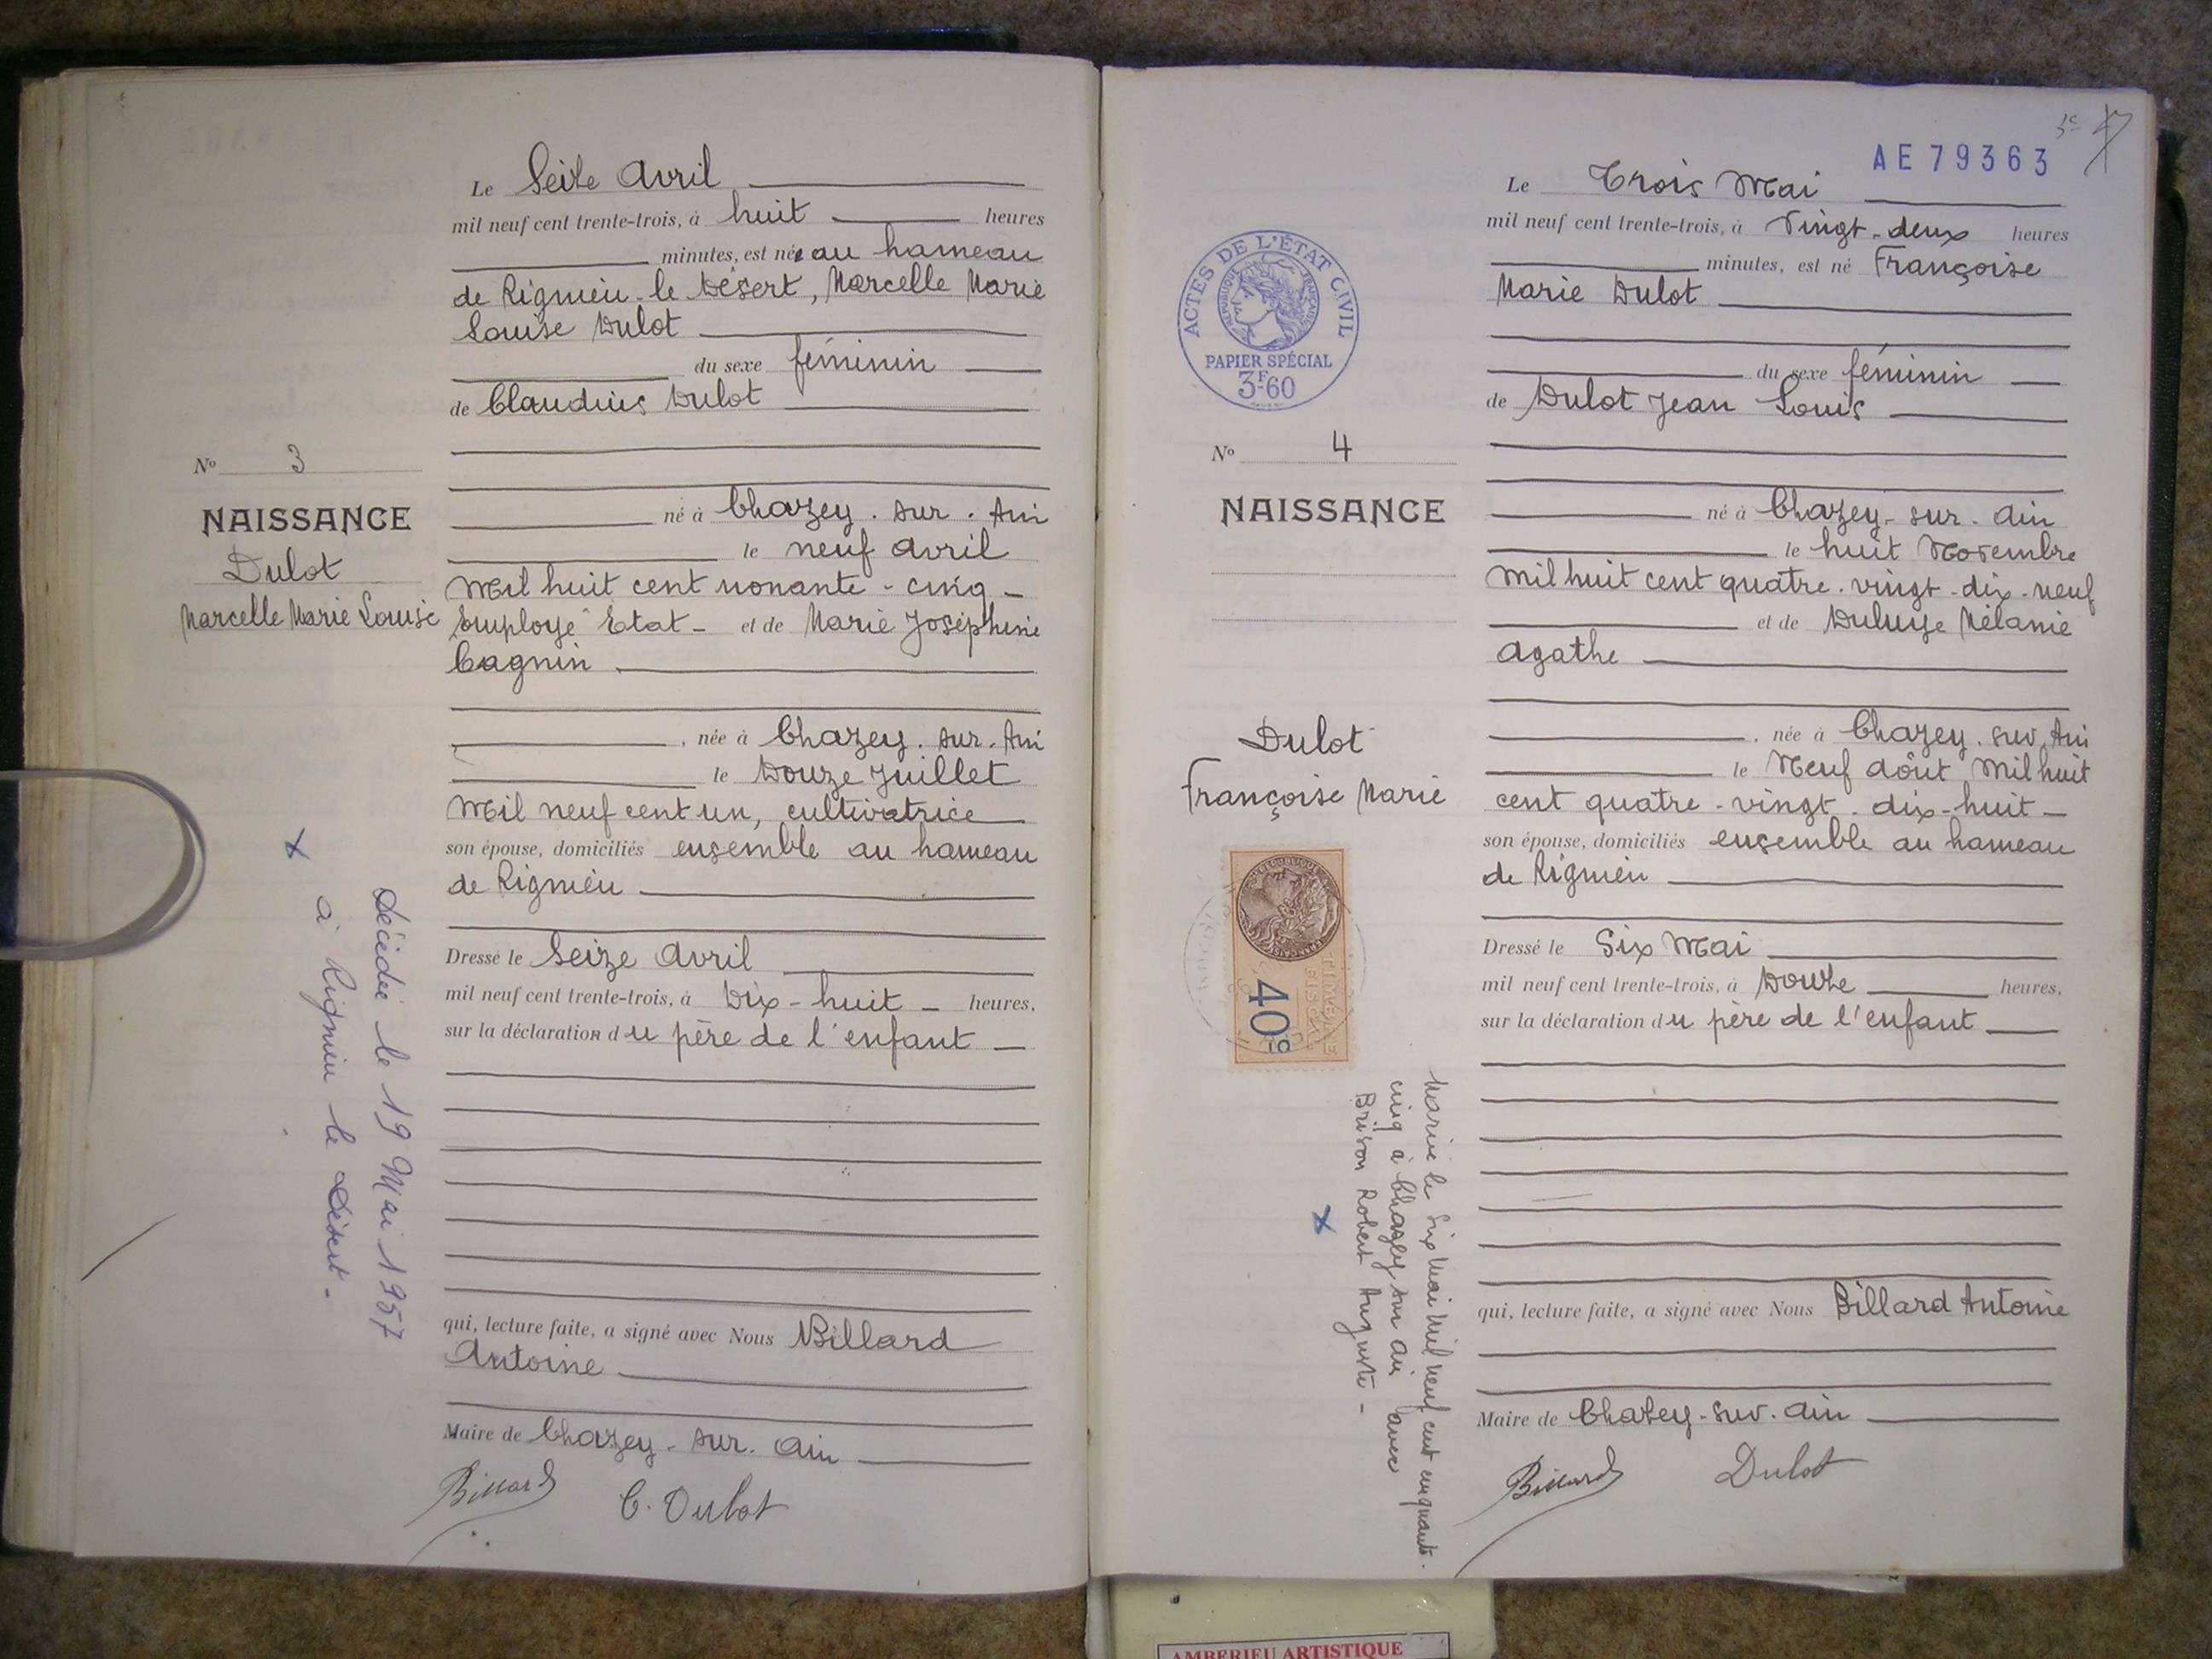 Le Seize Avril
mil neuf cent trente-trois, à huit heures
minutes, est née au hameau
de Rignieu-le-Désert, Marcelle Marie
Louise Dulot
du sexe féminin
de Claudius Dulot
né à Chazey-sur-Ain
le neuf avril
Mil huit cent nonante-cinq
Employé Etat- et de Marie Joséphine
Cagnin
, née à Chazey-sur-Ain
le Douze Juillet
Mil neuf cent un, cultivatrice
son épouse, domiciliés ensemble au hameau
de Rignieu
Dressé le Seize Avril
mil neuf cent trente-trois, à Dix-huit heures,
sur la déclaration du père de l'enfant
qui, lecture faite, a signé avec Nous Billard
Antoine
Maire de Chazey-sur-Ain
Billard C. Dulot
No 3
NAISSANCE
Dulot
Marcelle Marie Louise
Décédée le 19 Mai 1957
à Rignieu le Désert.
AE79363
Le Trois Mai
mil neuf cent trente-trois, à Vingt-deux heures
minutes, est né Françoise
Marie Dulot
du sexe féminin
de Dulot Jean Louis
né à Chazey-sur-Ain
le huit Novembre
Mil huit cent quatre-vingt-dix-neuf
et de Mélanie
Agathe
, née à Chazey-sur-Ain
le Neuf Août Mil huit
cent quatre-vingt-dix-huit
son épouse, domiciliés ensemble au hameau
de Rignieu
Dressé le Six Mai
mil neuf cent trente-trois, à Douze heures,
sur la déclaration du père de l'enfant
qui, lecture faite, a signé avec Nous Billard Antoine
Maire de Chazey-sur-Ain
Billard Dulot
ACTES DE L'ÉTAT CIVIL
RÉPUBLIQUE FRANÇAISE
PAPIER SPÉCIAL
3F60
No 4
NAISSANCE
Dulot
Françoise Marie
TIMBRE
FISCAL
40c
Mariée le Six Mai Mil neuf cent cinquante-
cinq à Chazey sur Ain avec
Brison Robert Auguste -
AMBERIEU ARTISTIQUE